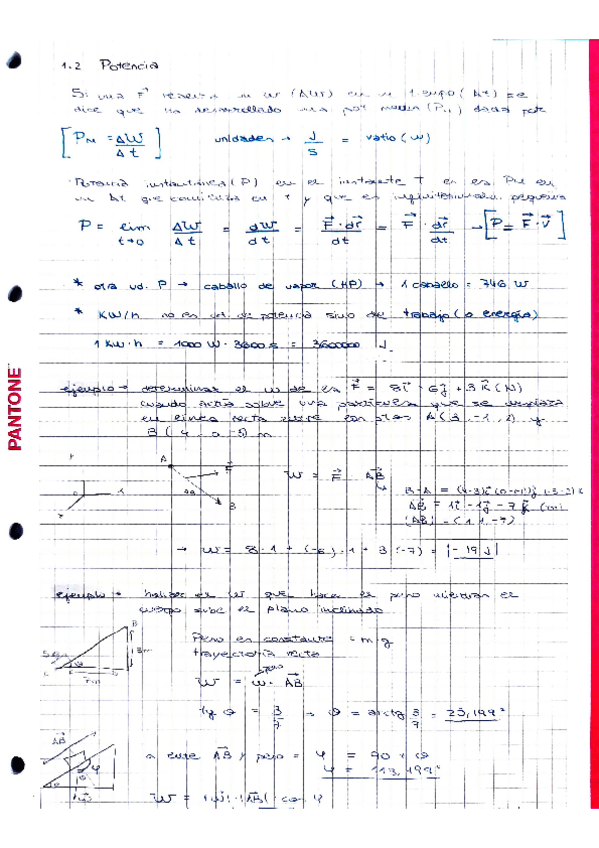 1.2 Potencia
Si una F⃗ realiza un w (ΔW) en un tiempo (Δt) se
dice que ha desarrollado una pot media (PM) dada por
[PM = ΔW/Δt] unidades → J/s = vatio (W)
Potencia instantánea (P) en el instante t en es PM en
un Δt que coincida en t y que es infinitesimal pequeño
P = lim t→0 ΔW/Δt = dW/dt = F⃗·dr⃗/dt = F⃗·dr⃗/dt → [P = F⃗·V⃗]
* otra ud. P → caballo de vapor (HP) → 1 caballo = 746 W
* KW/h no es ud. de potencia sino de trabajo (o energía)
1 KW·h = 1000 W·3600 s = 3600000 J
PANTONE
ejemplo → determinar el w de la F⃗ = 8i⃗ - 6j⃗ + 3k⃗ (N)
cuando actúa sobre una partícula que se
en línea recta entre los ptos A(3,-1,2) y
B(4, 0,-5) m
A
F⃗
B
W = F⃗ AB⃗
B-A = (4-3)i⃗ (0-(-1))j⃗ (-5-2)k⃗
AB⃗ = 1i⃗ -1j⃗ -7k⃗ (m)
(AB) = (1,1,-7)
→ W = 8·1 + (-6)·1 + 3(-7) = |-19 J|
ejemplo → hallar el W que hace el peso mientras el
cuerpo sube el plano inclinado
B
3m
7m
Peso es constante = m·g
trayectoria recta
peso
W = w·AB⃗
tg θ = 3/7 → θ = arctg 3/7 = 23,199°
AB⃗
φ
θ
w⃗
entre AB⃗ y peso = φ = 90 + θ
φ = 113,199°
W = |w|·|AB|·cos φ